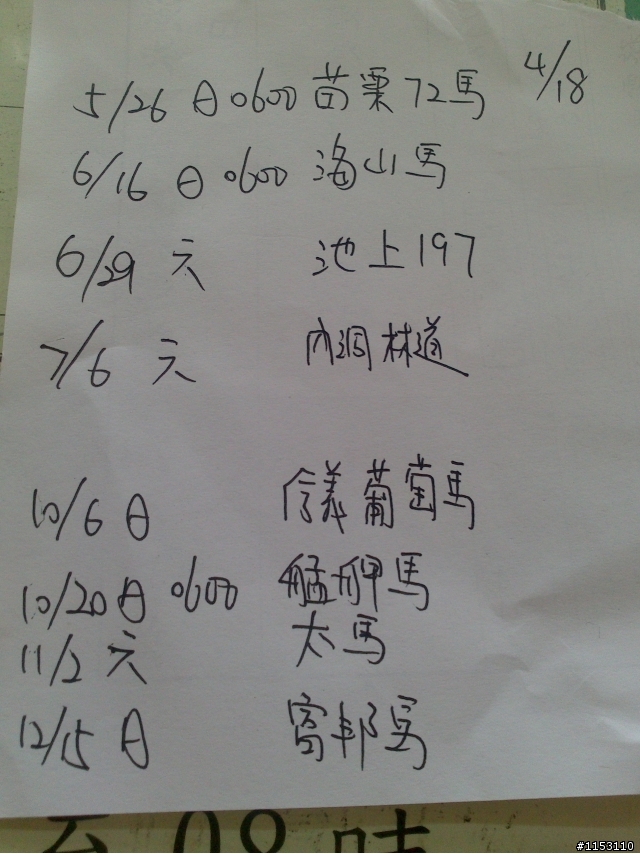 4/18
5/26 日 0600 苗栗72馬
6/16 日 0600 海山馬
6/29 六 池上197
7/6 六 內洞林道
10/6 日 信義葡萄馬
10/20 日 0600 艋舺馬
11/2 六 太馬
12/15 日 富邦馬
#1153110